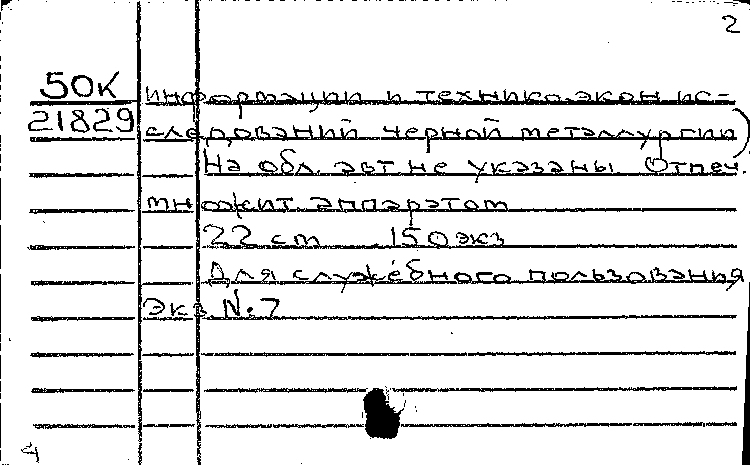 2
50К информации и технико-экон ис-
21829 следований черной металлургии)
На обл. авт не указаны. Отпеч.
множит аппаратом
22 cm 150 экз
Для служебного пользования
Экз №. 7